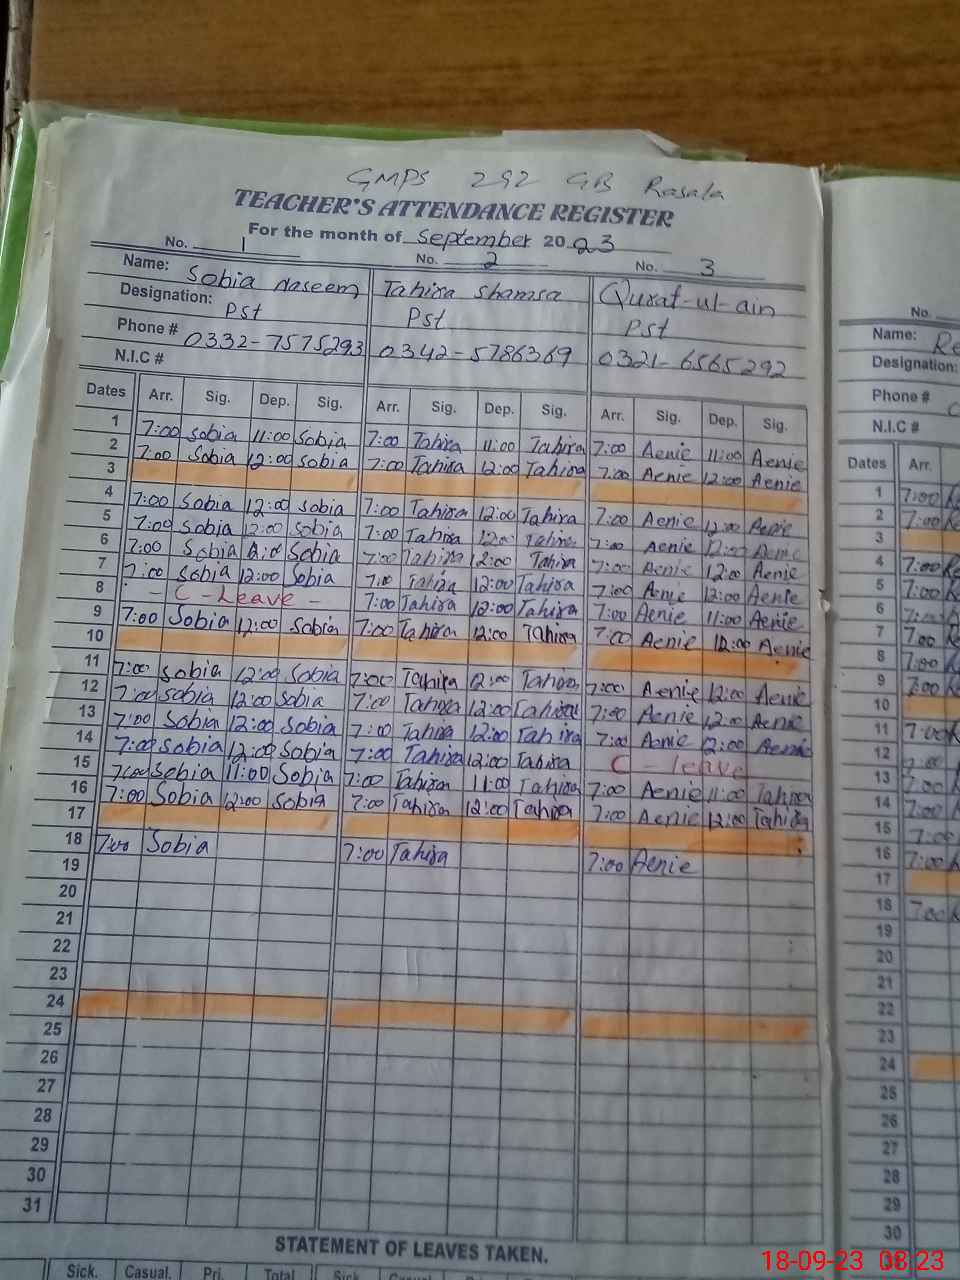 GMPS 292 GB Rasala
TEACHER'S ATTENDANCE REGISTER
For the month of September 2023
No. 1 No. 2 No. 3
Name: Sobia Naseem Tahira Shamsa Qurat-ul-ain
Designation: Pst Pst Pst
Phone # 0332-7575293 0342-5786369 0321-6565292
N.I.C #
Dates Arr. Sig. Dep. Sig. Arr. Sig. Dep. Sig. Arr. Sig. Dep. Sig.
1 7:00 Sobia 11:00 Sobia 7:00 Tahira 11:00 Tahira 7:00 Aenie 11:00 Aenie
2 7:00 Sobia 12:00 Sobia 7:00 Tahira 12:00 Tahira 7:00 Aenie 12:00 Aenie
3
4 7:00 Sobia 12:00 Sobia 7:00 Tahira 12:00 Tahira 7:00 Aenie 12:00 Aenie
5 7:00 Sobia 12:00 Sobia 7:00 Tahira 12:00 Tahira 7:00 Aenie 12:00 Aenie
6 7:00 Sobia Sobia 7:00 Tahira 12:00 Tahira 7:00 Aenie 12:00 Aenie
7 7:00 Sobia 12:00 Sobia 7:00 Tahira 12:00 Tahira 7:00 Aenie 12:00 Aenie
8 - C - Leave - 7:00 Tahira 12:00 Tahira 7:00 Aenie 11:00 Aenie
9 7:00 Sobia 12:00 Sobia 7:00 Tahira 12:00 Tahira 7:00 Aenie 12:00 Aenie
10
11 7:00 Sobia 12:00 Sobia 7:00 Tahira 12:00 Tahira 7:00 Aenie 12:00 Aenie
12 7:00 Sobia 12:00 Sobia 7:00 Tahira 12:00 Tahira 7:00 Aenie 12:00 Aenie
13 7:00 Sobia 12:00 Sobia 7:00 Tahira 12:00 Tahira 7:00 Aenie 12:00 Aenie
14 7:00 Sobia 12:00 Sobia 7:00 Tahira 12:00 Tahira C - leave
15 7:00 Sobia 11:00 Sobia 7:00 Tahira 11:00 Tahira 7:00 Aenie 11:00 Tahira
16 7:00 Sobia 12:00 Sobia 7:00 Tahira 12:00 Tahira 7:00 Aenie 12:00 Tahira
17
18 7:00 Sobia 7:00 Tahira 7:00 Aenie
19
20
21
22
23
24
25
26
27
28
29
30
31
STATEMENT OF LEAVES TAKEN.
Sick. Casual. Pri. Total Sick. Casual. Pri. Total
No.
Name:
Designation:
Phone #
N.I.C #
Dates Arr.
1 7:00
2 7:00
3
4 7:00
5 7:00
6 7:00
7 7:00
8 7:00
9 7:00
10
11 7:00
12 7:00
13 7:00
14 7:00
15 7:00
16 7:00
17
18 7:00
19
20
21
22
23
24
25
26
27
28
29
30
18-09-23 08:23